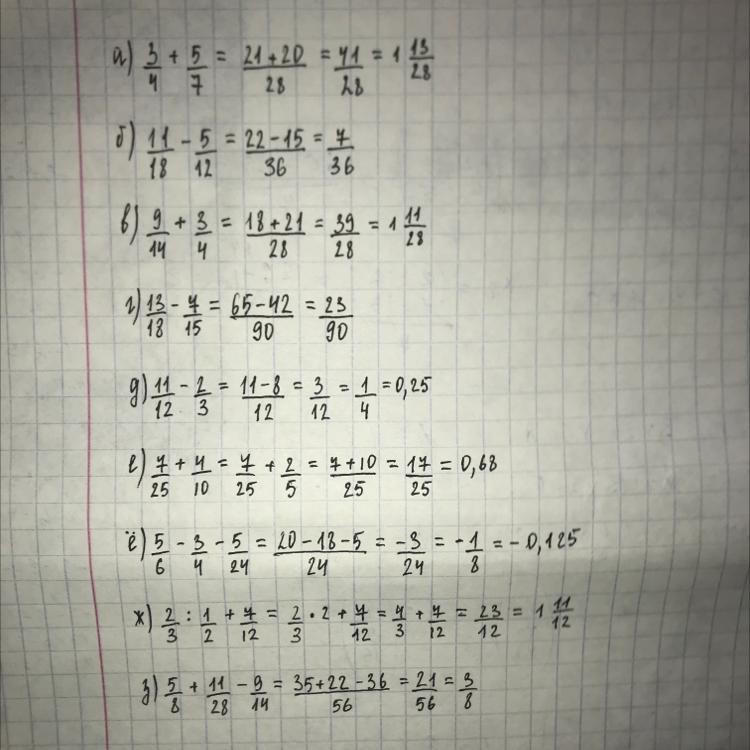 а) 3/4 + 5/7 = (21+20)/28 = 41/28 = 1 13/28
б) 11/18 - 5/12 = (22-15)/36 = 7/36
в) 9/14 + 3/4 = (18+21)/28 = 39/28 = 1 11/28
г) 13/18 - 7/15 = (65-42)/90 = 23/90
д) 11/12 - 2/3 = (11-8)/12 = 3/12 = 1/4 = 0,25
е) 7/25 + 4/10 = 7/25 + 2/5 = (7+10)/25 = 17/25 = 0,68
ё) 5/6 - 3/4 - 5/24 = (20-18-5)/24 = -3/24 = -1/8 = -0,125
ж) 2/3 : 1/2 + 7/12 = 2/3 • 2 + 7/12 = 4/3 + 7/12 = 23/12 = 1 11/12
з) 5/8 + 11/28 - 9/14 = (35+22-36)/56 = 21/56 = 3/8